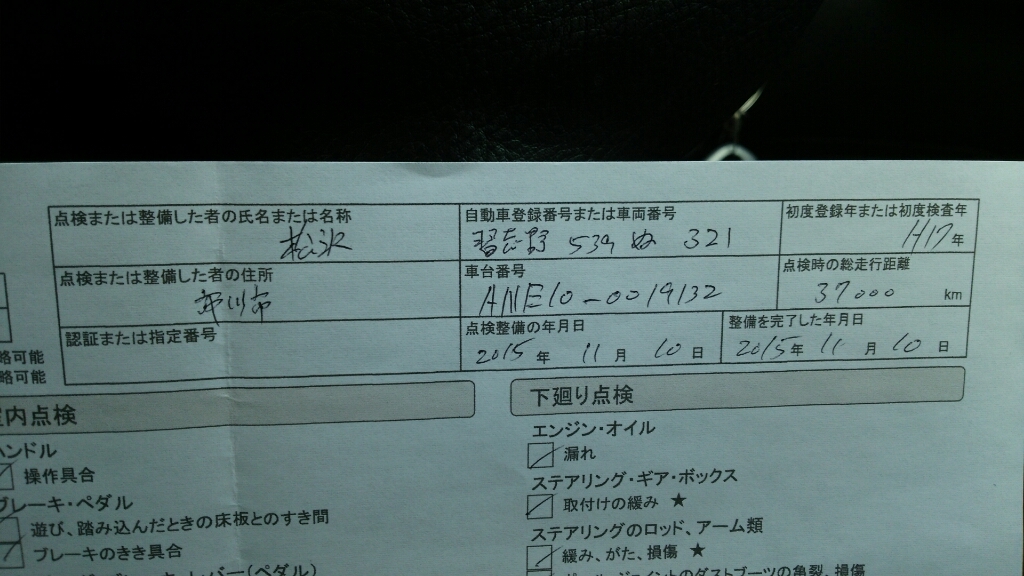 点検または整備した者の氏名または名称
松沢
自動車登録番号または車両番号
習志野 539 ぬ 321
初度登録年または初度検査年
H17年
点検または整備した者の住所
市川市
車台番号
ANE10-0019132
点検時の総走行距離
37000 km
認証または指定番号
点検整備の年月日
2015年 11月 10日
整備を完了した年月日
2015年 11月 10日
略可能
略可能
内点検
ハンドル
操作具合
ブレーキ・ペダル
遊び、踏み込んだときの床板とのすき間
ブレーキのきき具合
レバー(ペダル)
下廻り点検
エンジン・オイル
漏れ
ステアリング・ギア・ボックス
取付けの緩み ★
ステアリングのロッド、アーム類
緩み、がた、損傷 ★
ボール・ジョイントのダストブーツの亀裂、損傷